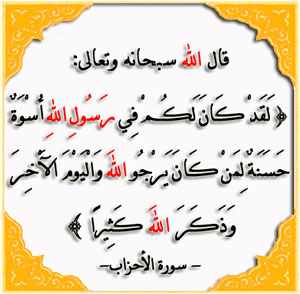 قال الله سبحانه وتعالى:
﴿ لَقَدْ كَانَ لَكُمْ فِي رَسُولِ اللهِ أُسْوَةٌ
حَسَنَةٌ لِمَنْ كَانَ يَرْجُو اللهَ وَالْيَوْمَ الْآخِرَ
وَذَكَرَ اللهَ كَثِيرًا ﴾
- سورة الأحزاب-